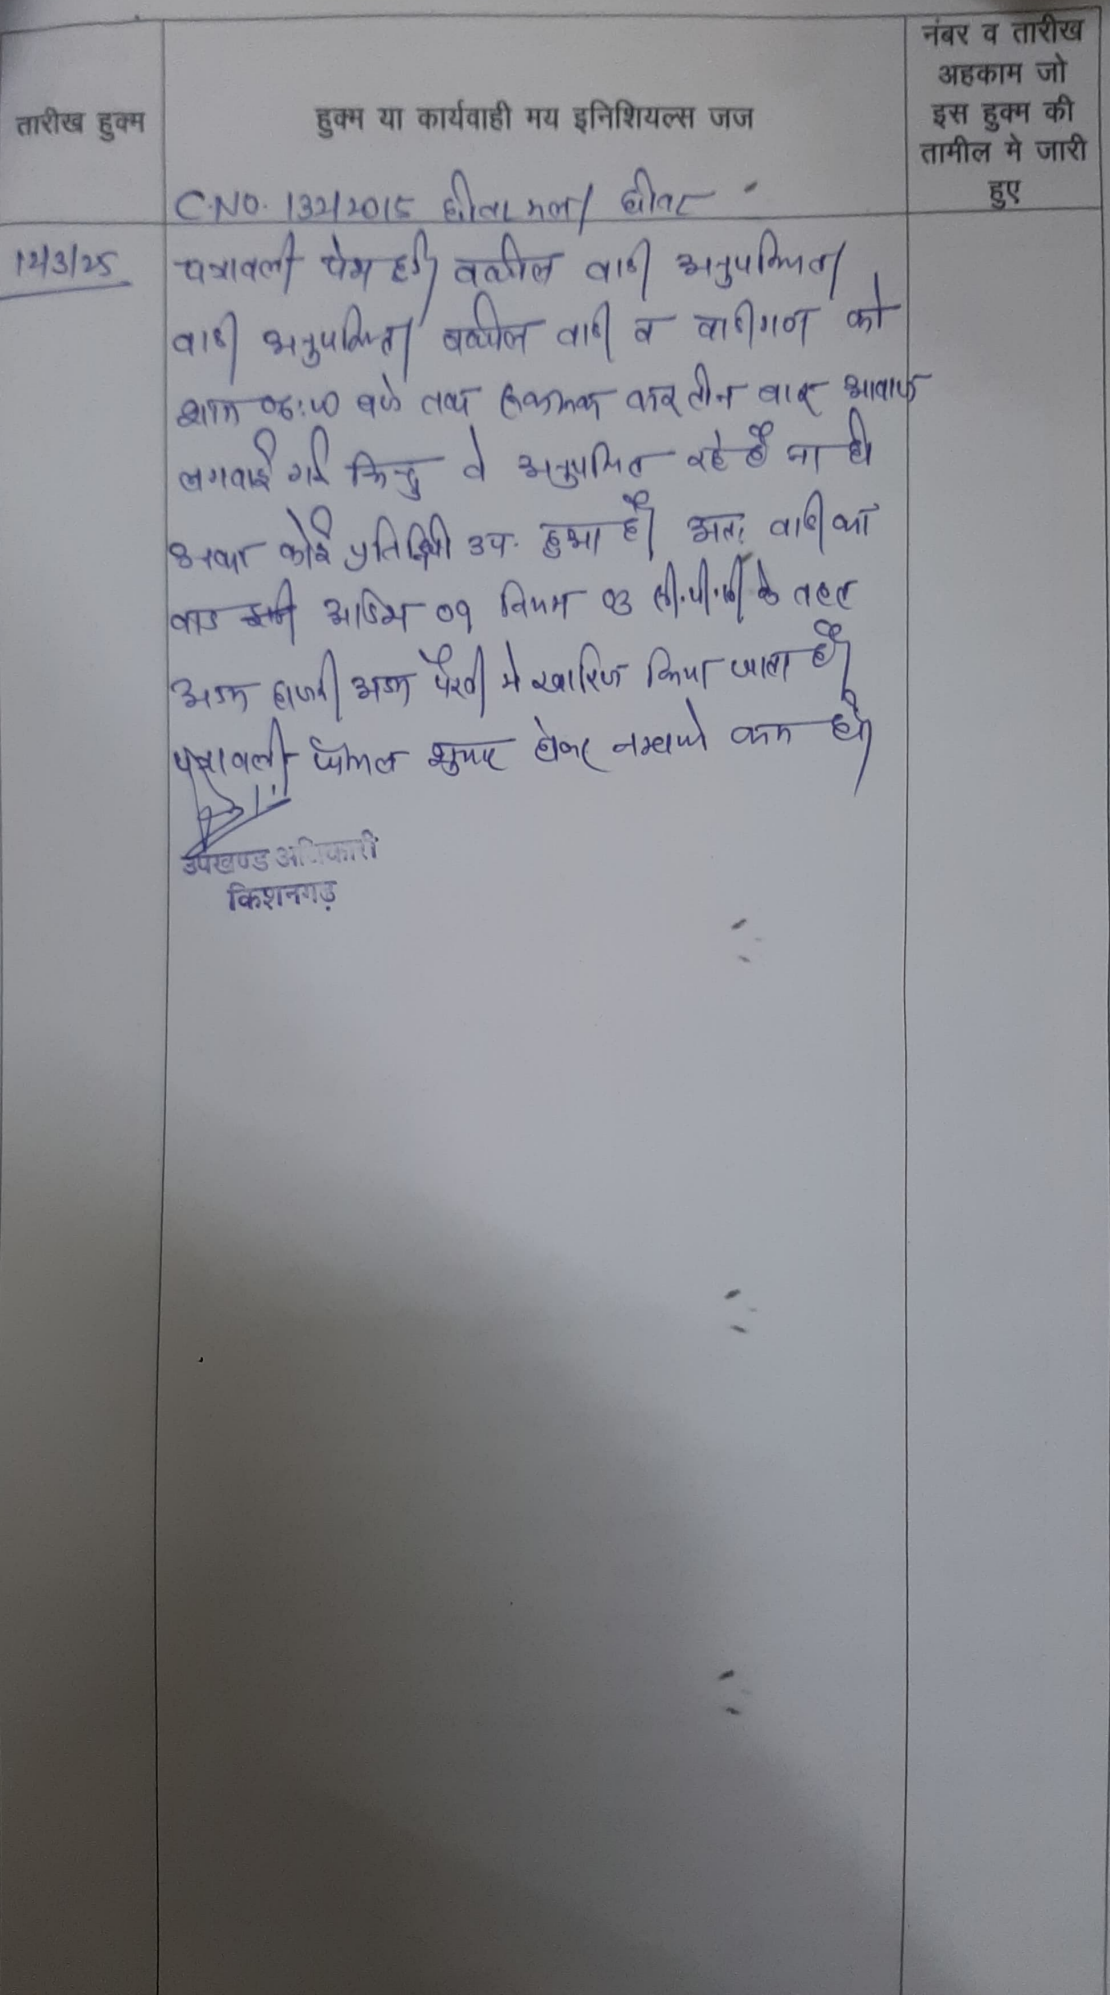 तारीख हुक्म
हुक्म या कार्यवाही मय इनिशियल्स जज
नंबर व तारीख
अहकाम जो
इस हुक्म की
तामील मे जारी
हुए
C.NO. 132/2015
12/3/25
पत्रावली पेश हुई। वकील वादी अनुपस्थित।
वादी अनुपस्थित। वकील वादी व वादीगण को
शाम 06:00 बजे तक रुकरुक कर तीन बार आवाज
लगवाई गई किन्तु वे अनुपस्थित रहे हैं ना ही
उनका कोई प्रतिनिधी उप. हुआ है। अतः वादी का
वाद आदेश 09 नियम 03 सी.पी.सी के तहत
अदम हाजरी अदम पैरवी मे खारिज किया जाता है।
पत्रावली फैसल शुमार होकर नम्बर से कम हो।
उपखण्ड अधिकारी
किशनगढ़